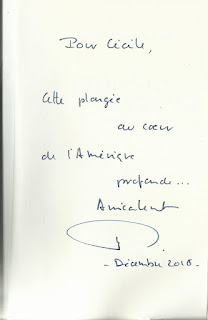 Pour Cécile,
Cette plongée
au cœur
de l'Amérique
profonde...
Amicalement
- Décembre 2018 -